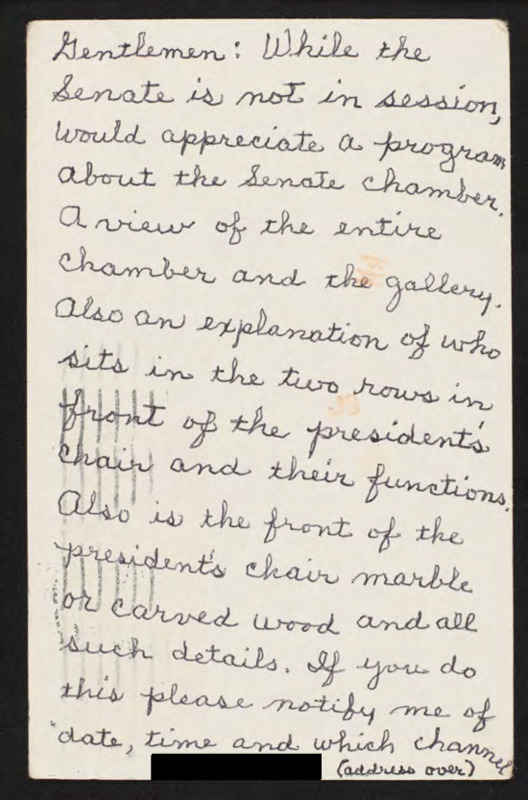 Gentlemen: While the
Senate is not in session,
would appreciate a program
about the Senate chamber.
A view of the entire
chamber and the gallery.
Also an explanation of who
sits in the two rows in
front of the president's
chair and their functions.
Also is the front of the
president's chair marble
or carved wood and all
such details. If you do
this please notify me of
date, time and which channel
(address over)